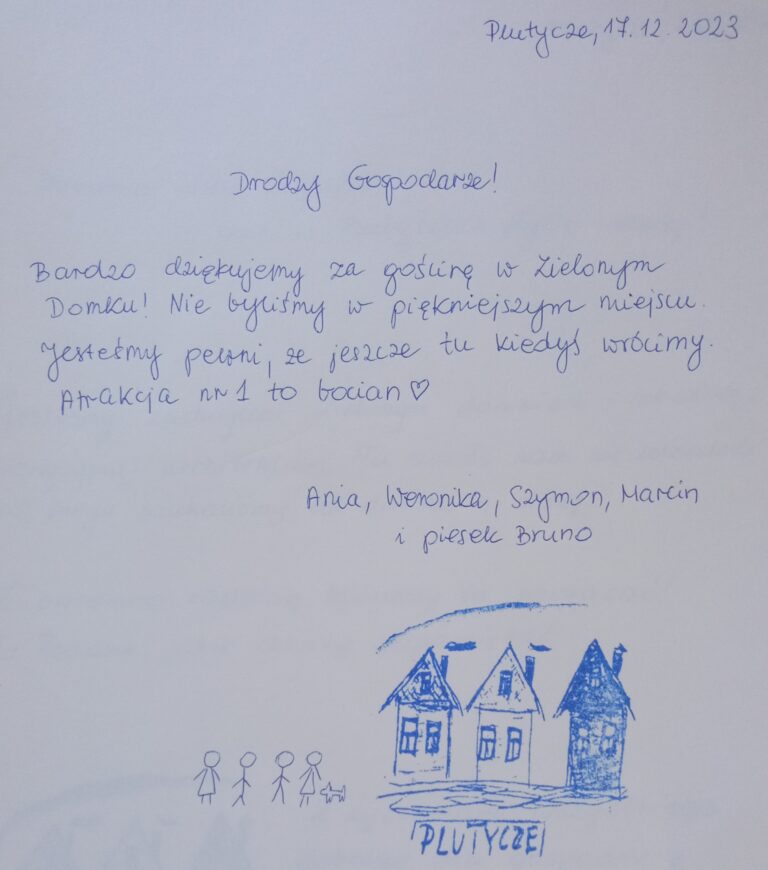 Plutycze, 17.12.2023
Drodzy Gospodarze!
Bardzo dziękujemy za gościnę w Zielonym
Domku! Nie byliśmy w piękniejszym miejscu.
Jesteśmy pewni, że jeszcze tu kiedyś wrócimy.
Atrakcja nr 1 to bocian ♡
Ania, Weronika, Szymon, Marcin
i piesek Bruno
PLUTYCZE